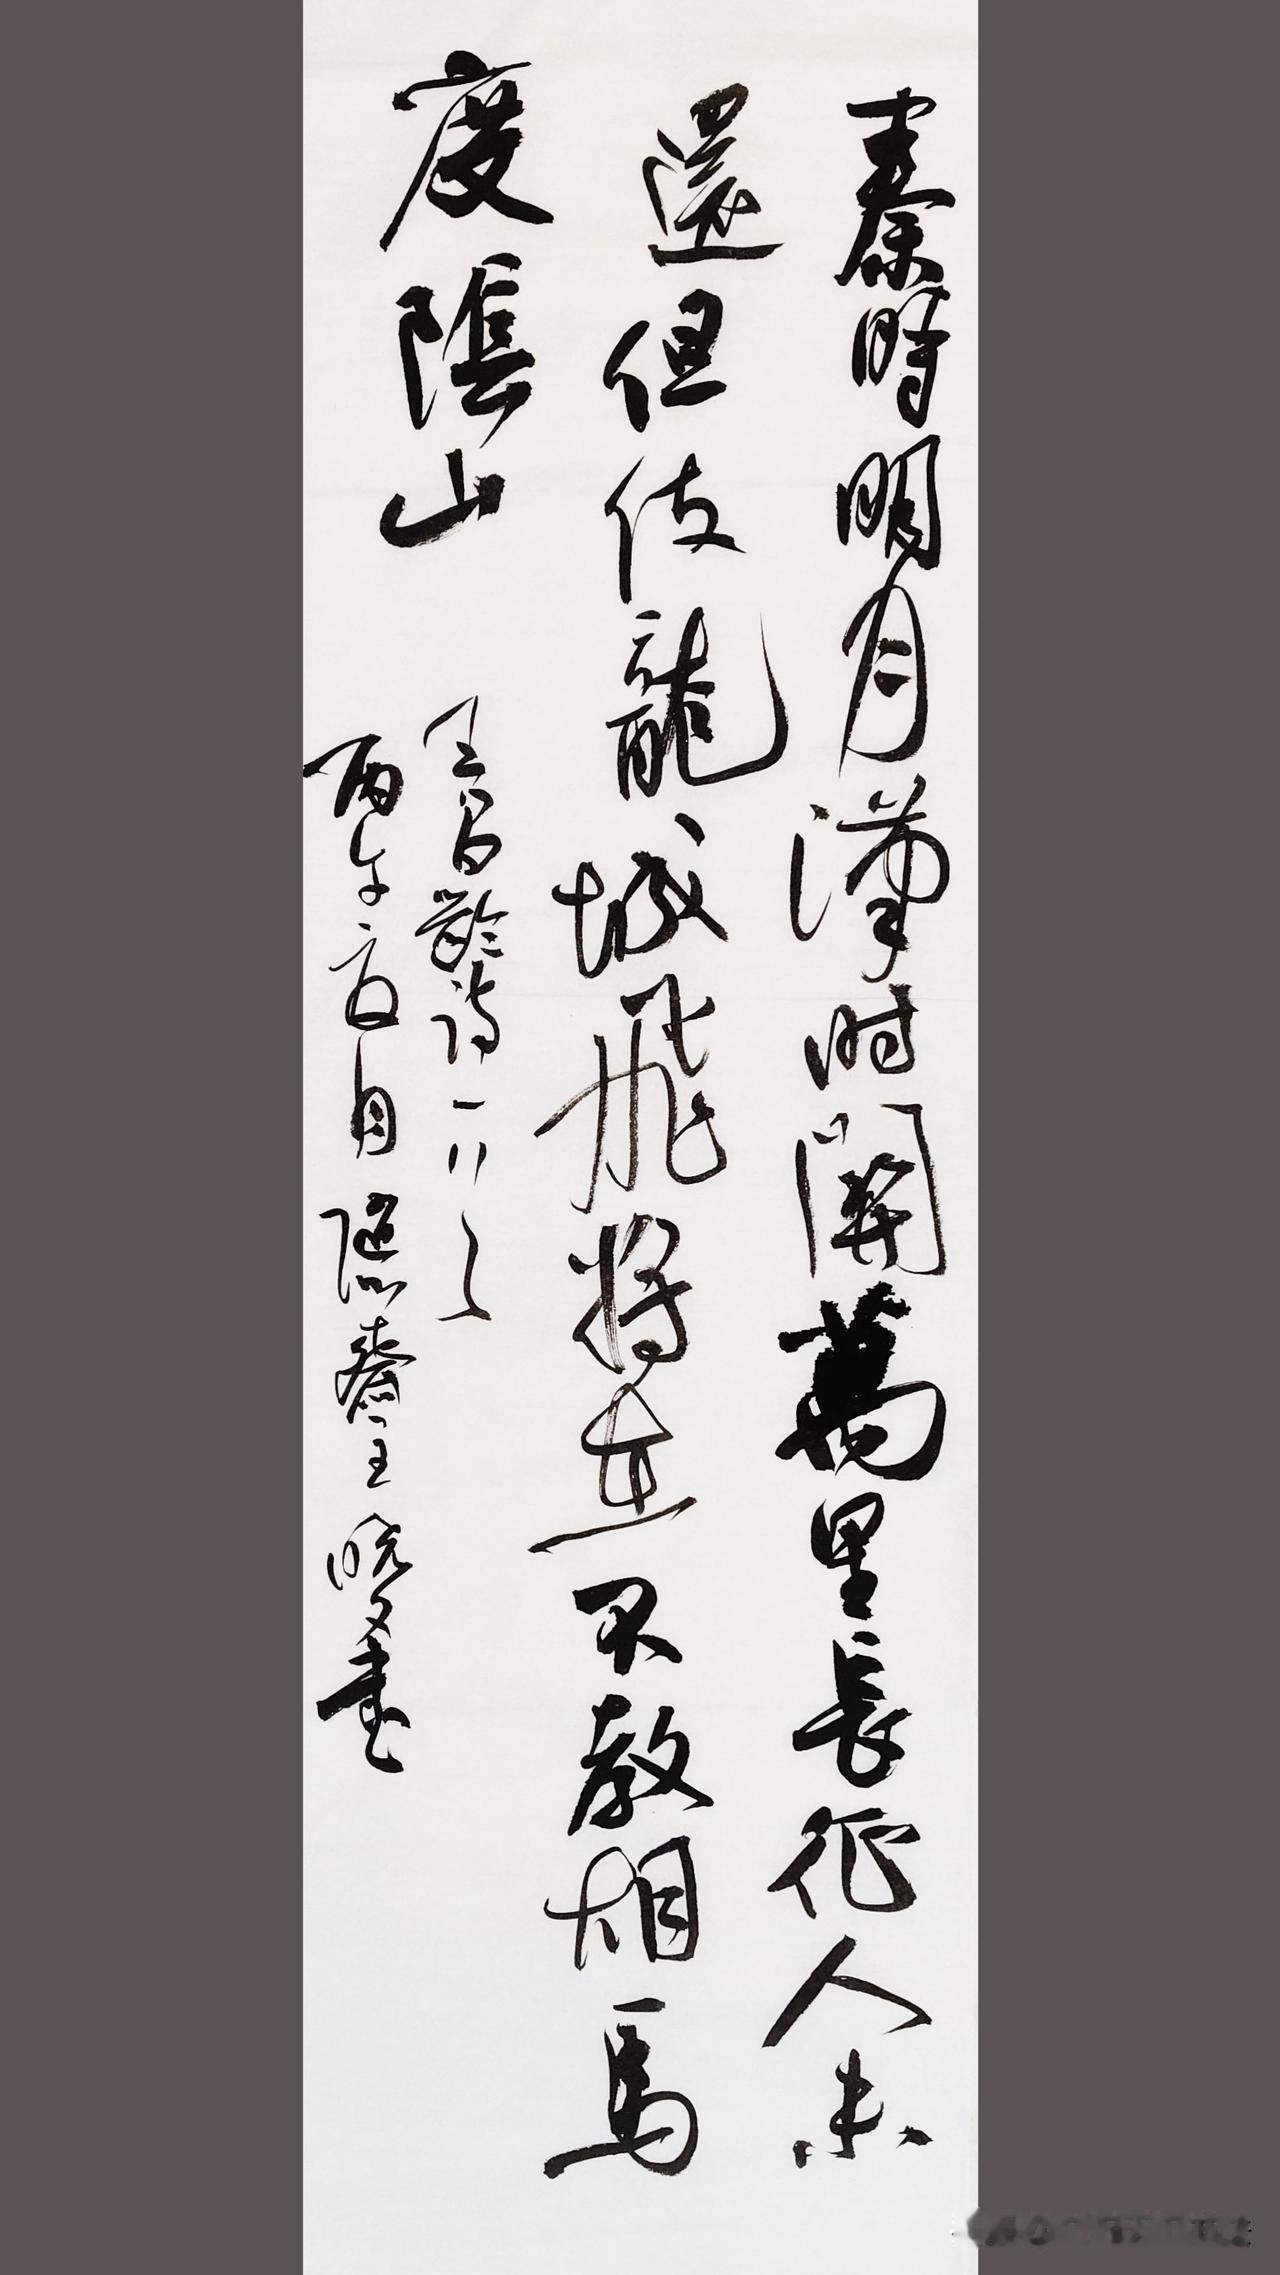 秦時明月漢时關萬里長征人未
還但使龍城飛將在不教胡馬
度陰山
王昌齡詩一首
丙午月隱齋主晓書